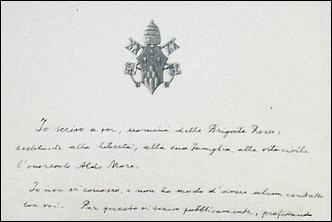 Io scrivo a voi, uomini delle Brigate Rosse:
restituite alla libertà, alla sua famiglia, alla vita civile
l'onorevole Aldo Moro.
Io non vi conosco, e non ho modo d'avere alcun contatto
con voi. Per questo vi scrivo pubblicamente, profittando